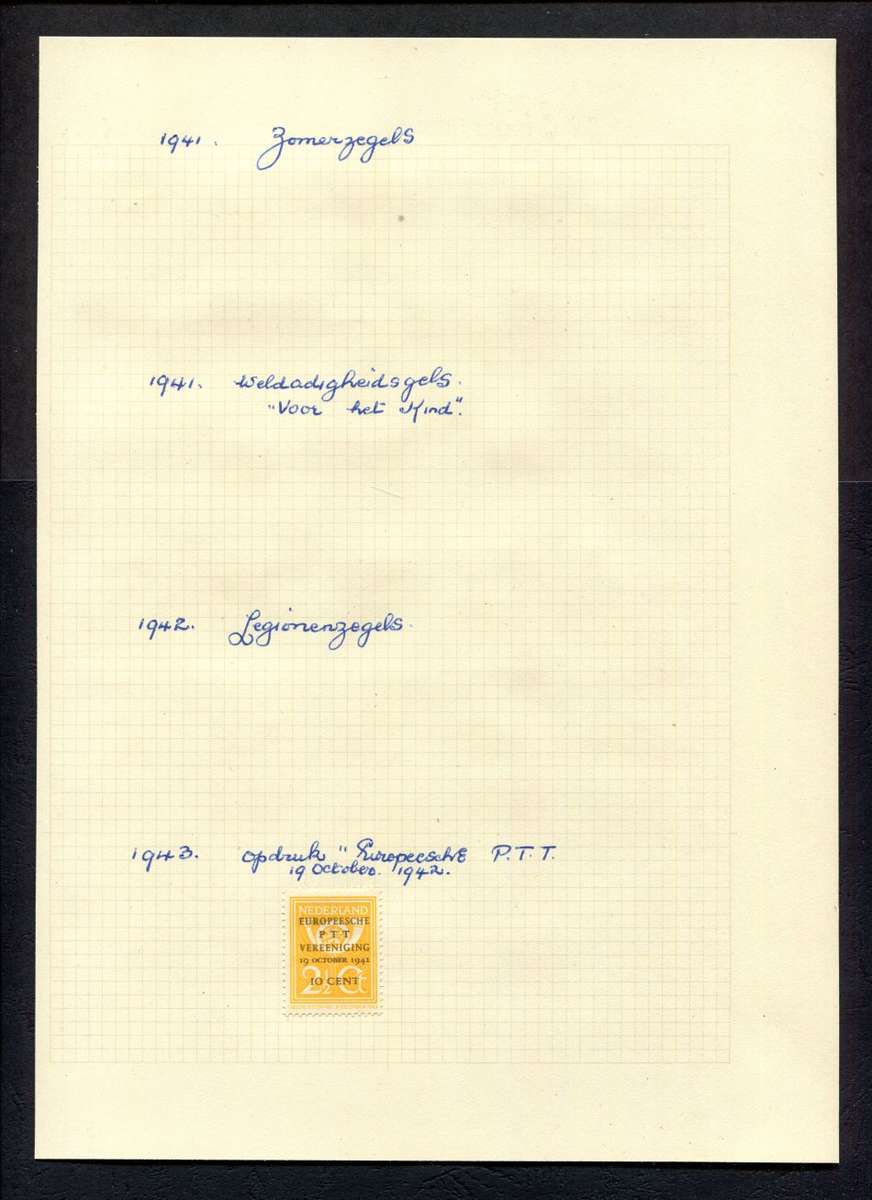 1941. Zomerzegels
1941. Weldadigheidsgels.
"Voor het Kind".
1942. Legionenzegels.
1943. opdruk "Europeesche P.T.T.
19 October. 1942.
NEDERLAND
EUROPEESCHE
PTT
VEREENIGING
19 OCTOBER 1942
2½ Ct
10 CENT